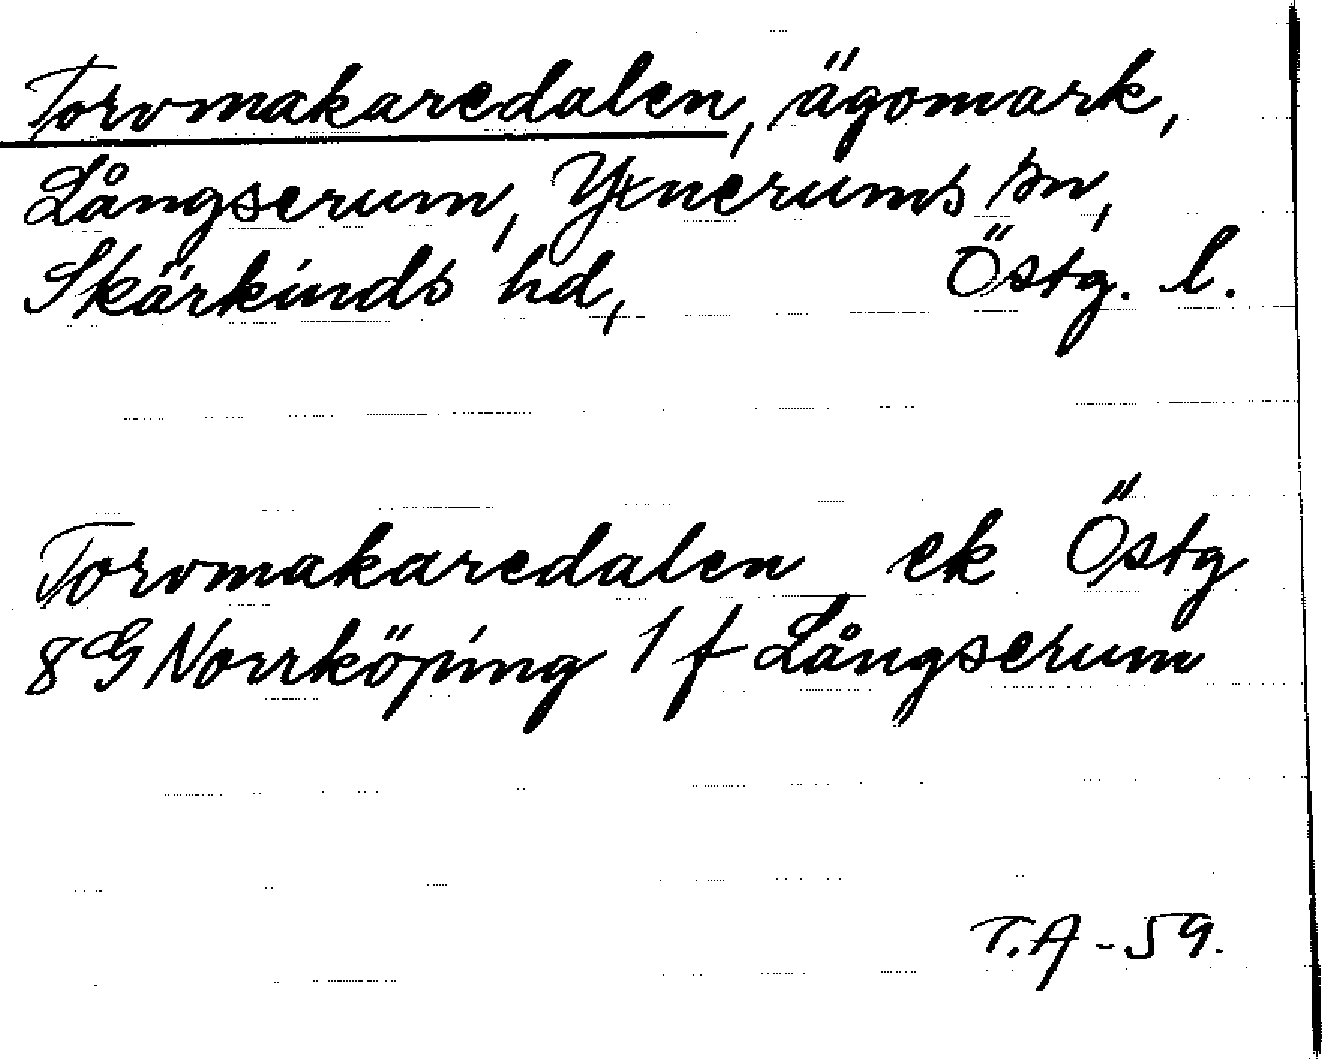 Torvmakaredalen, ägomark,
Långserum, Yxnerums sn,
Skärkinds hd, Östg. l.
Torvmakaredalen ek Östg
8G Norrköping 1 f Långserum
T.A - 59.